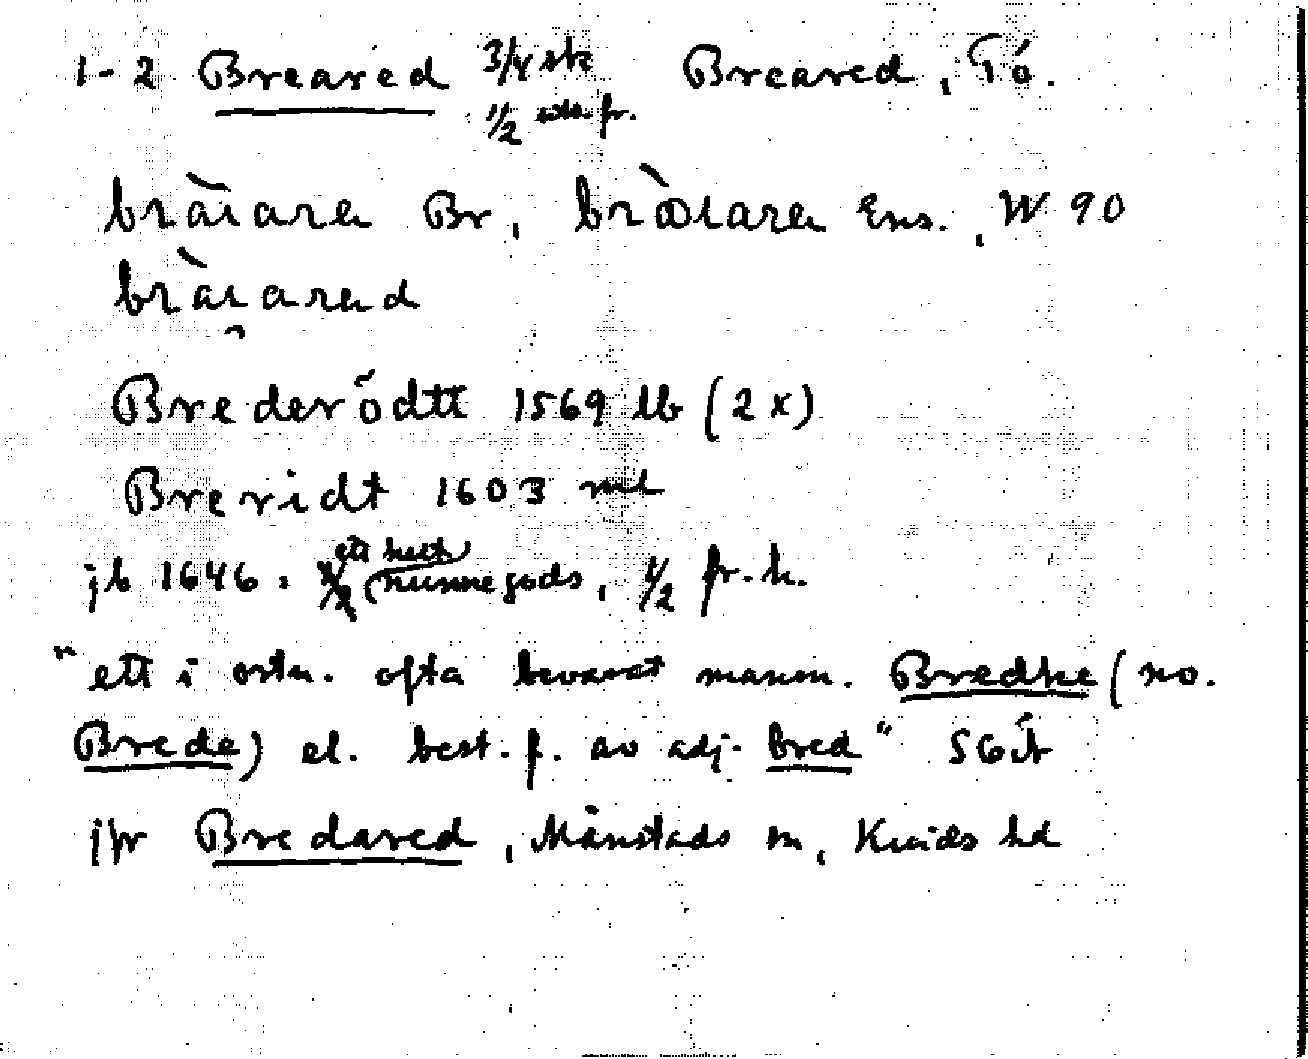 1-2 Breared 3/4 sk Breared, Tö.
1/2 fr.
bràiarea Br, bròtarea Ens., W 90
bràiaread
Brederödtt 1569 lb (2x)
Breridt 1603 ml
jb 1646: ett helt nunnegods, 1/2 fr. h.
"ett i ortn. ofta bevarat mansn. Bredhe (no.
Brede) el. best. f. av adj. bred" SGÄ
jfr Bredared, Månstads sn, Kinds hd